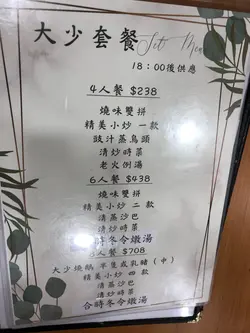 大少套餐
Set Men
18:00後供應
4人餐 $238
燒味雙拼
精美小炒 一款
豉汁蒸烏頭
清炒時菜
老火例湯
6人餐 $438
燒味雙拼
精美小炒 二款
清蒸沙巴
清炒時菜
合時冬令燉湯
人餐 $708
大少燒鵝 半隻或乳豬 (中)
精美小炒 四款
清蒸沙巴
清炒時菜
合時冬令燉湯